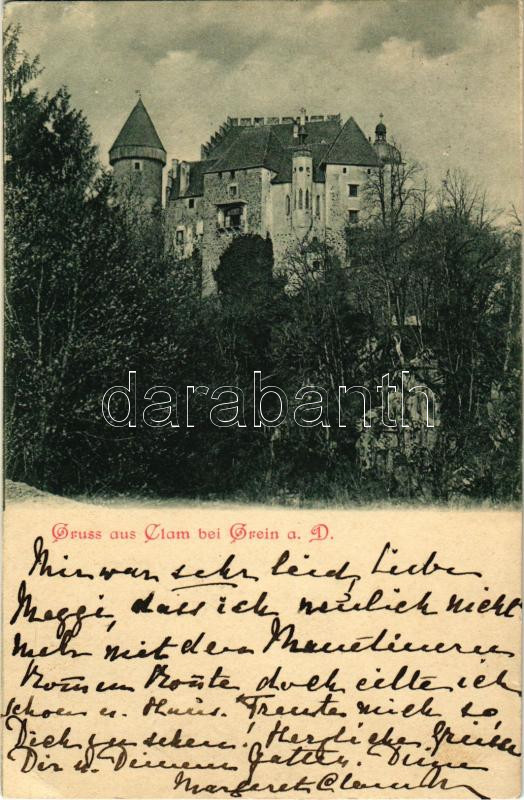 darabanth
Gruss aus Clam bei Grein a. D.
Mir war sehr leid, Liebe
Meggi, dass ich neulich nicht
mehr mit dem
kommen konnte doch eilte ich
schon n. Haus. Freute mich so
Dich zu sehen! Herzliche Grüsse
Dir u. Deinem Gatten. Deine
Margaret